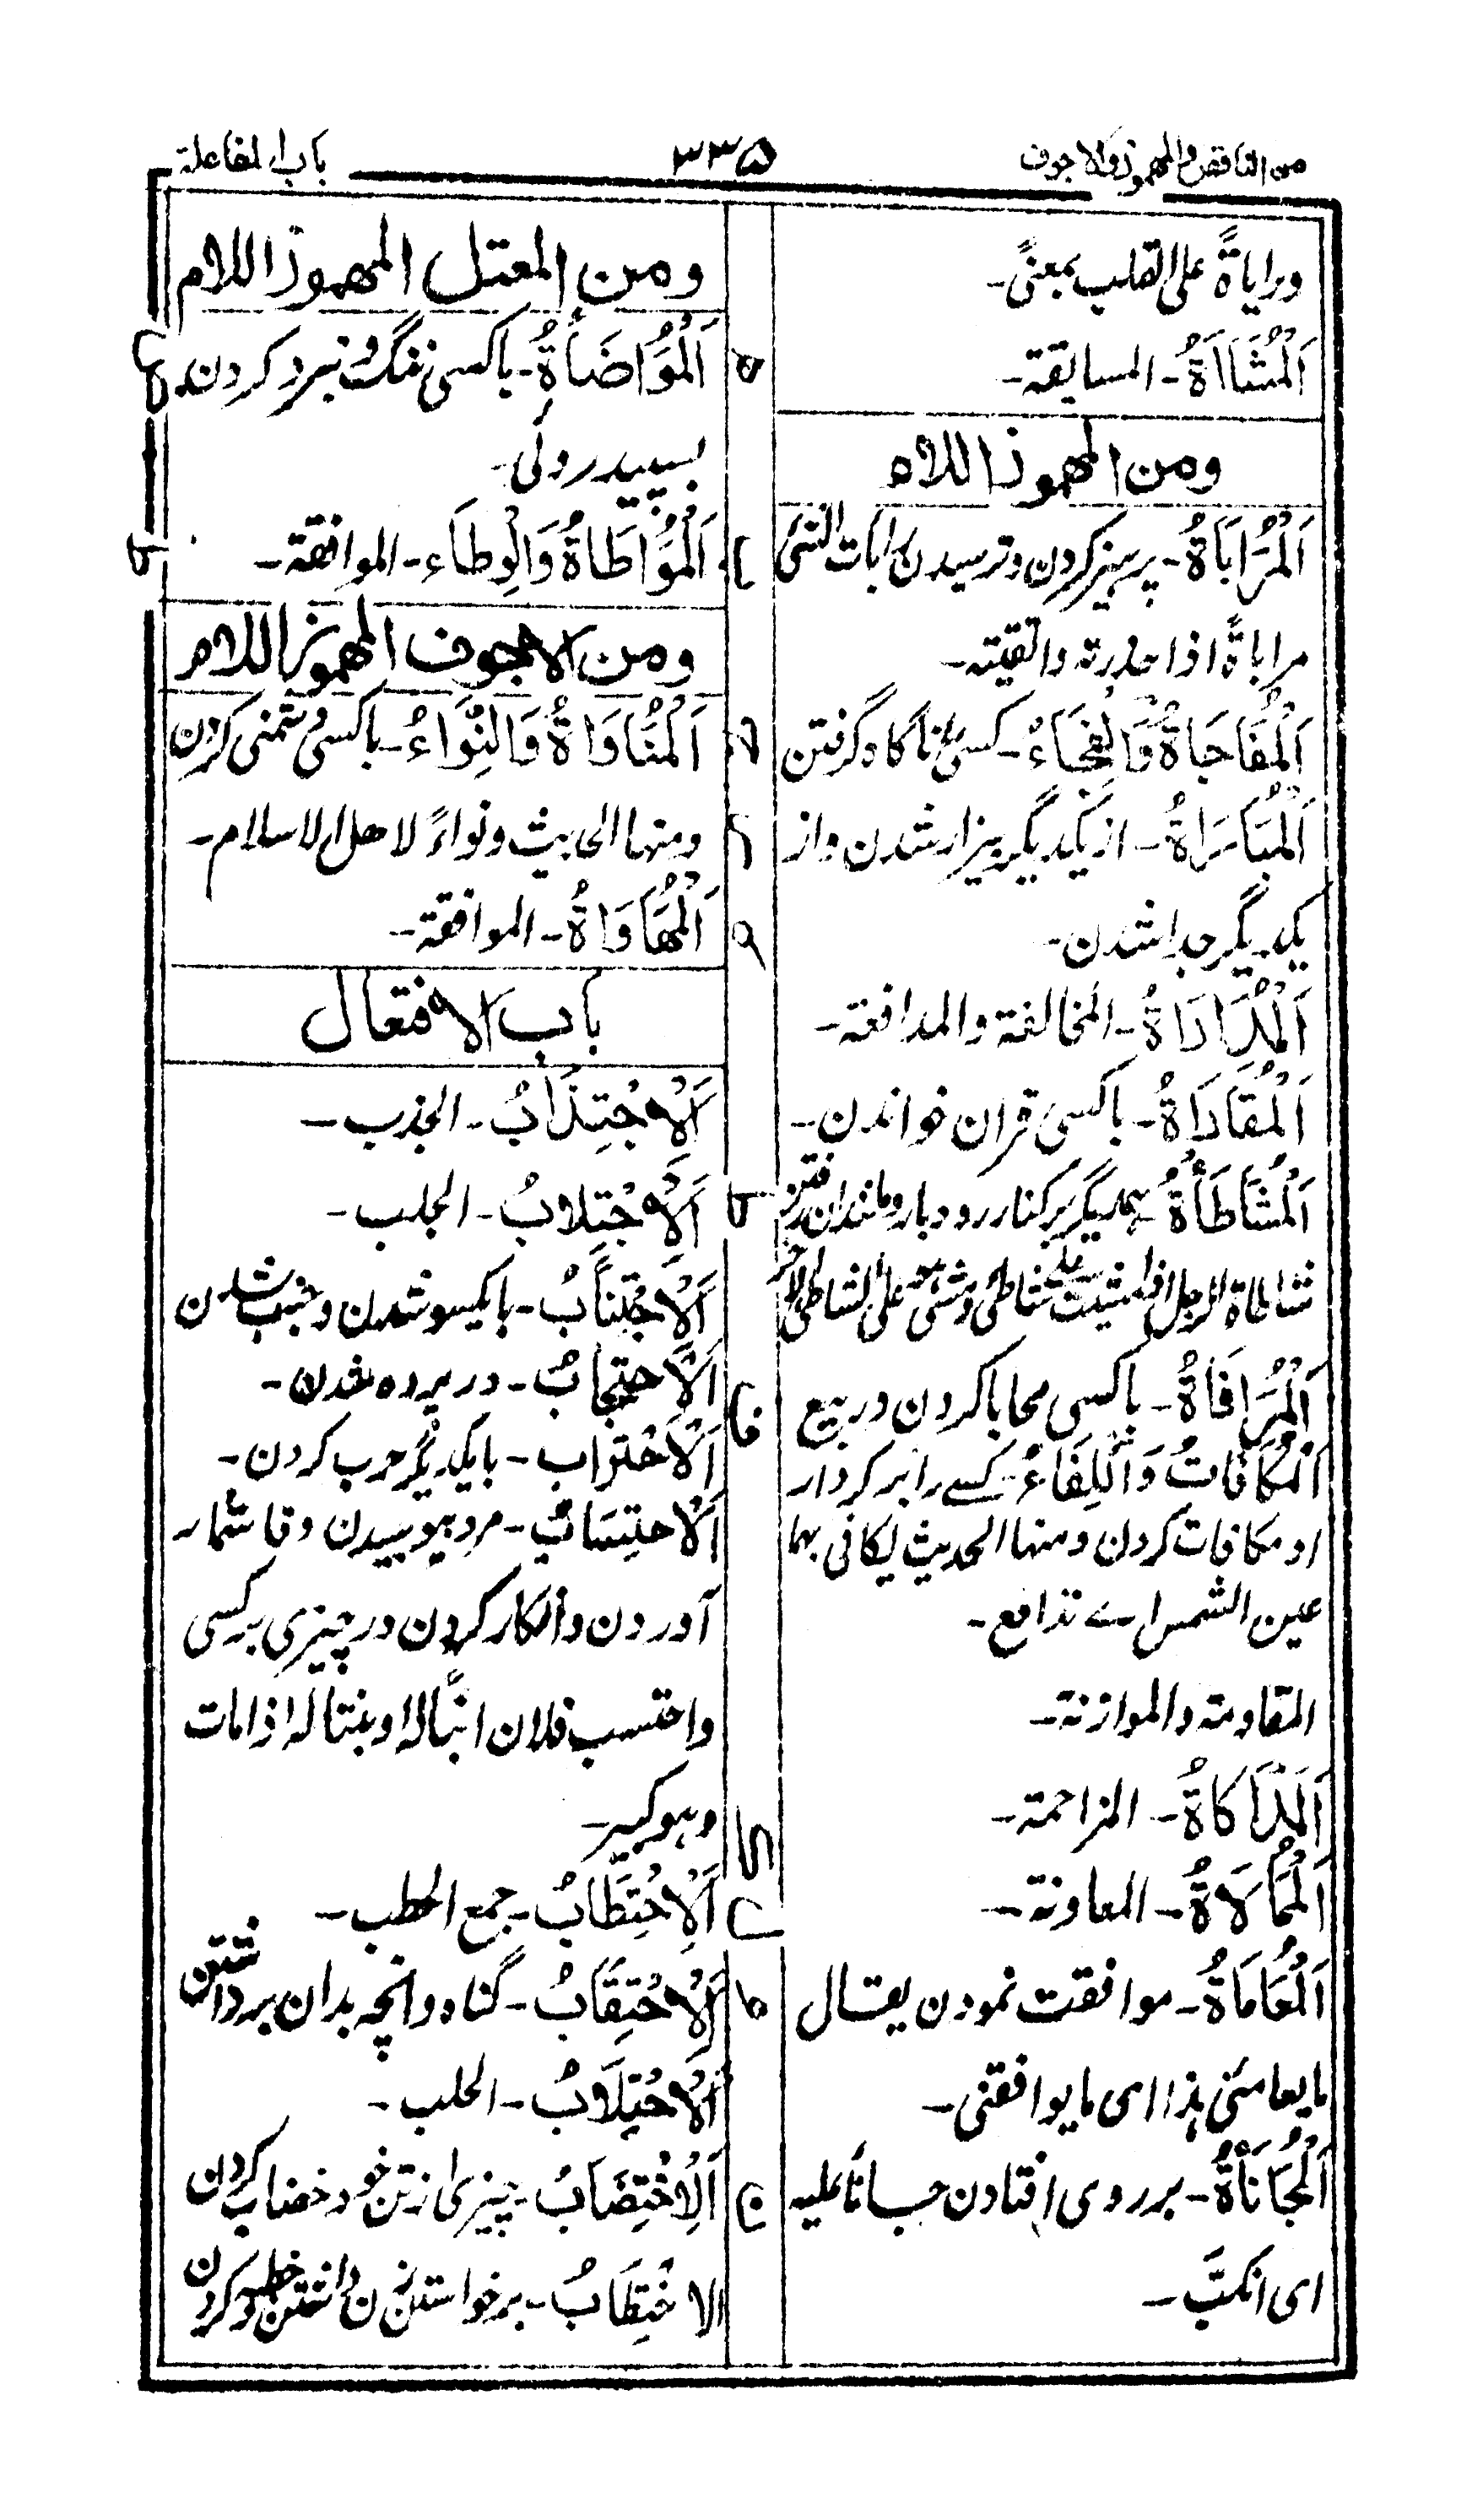 من الناقص والمهموز والاجوف
۳۳۵
باب المفاعلة
ورایاةً علی القلب بمعنیً۔
اَلْمُشَااَةُ۔ المسابقة۔
ومن المهموز اللام
اَلْمُرَابَاَةُ۔ پرہیز کردن وترسیدن رابات الشئ
مراباةً اذا حذرته واتقیته۔
اَلْمُفَاجَاةُ وَالْفِجَاءُ۔ کسی را ناگاہ گرفتن
اَلْمُبَارَاةُ۔ از یکدیگر بیزار شدن واز
یکدیگر جدا شدن۔
اَلْمُدَارَاةُ۔ المخالفة والمدافعة۔
اَلْمُقَارَاَةُ۔ باکسی قران خواندن۔
اَلْمُشَاطَأَةُ۔ ہمدیگر بر کنار رودبار وماننداں رفتن
شاطاة الرجل اذا مشیت علی شاطئ ومشی علی الشاطئ الاخر
اَلْمُرَافَاةُ۔ باکسی محابا کردن در بیع
اَلْمُکَافَاتُ وَالْکِفَاءُ۔ کسے را بر کردار
او مکافات کردن ومنها الحدیث لیکافی بهما
عین الشمس اے تدافع۔
المقاومة والموازنة۔
اَلْمُدَاکَاةُ۔ المزاحمة۔
اَلْمُمَالَاَةُ۔ المعاونة۔
اَلْمُعَامَاَةُ۔ موافقت نمودن یقال
ما یعامئنی ہذا ای ما یوافقنی۔
اَلْمُجَانَأَةُ۔ بر روی افتادن جانا علیه
ای انکبّ۔
ومن المعتل المهموز اللام
اَلْمُوَاضَأَةُ۔ باکسی ننگ ونبرد کردن
بسپید روئی۔
اَلْمُوَاطَاَةُ وَالْوِطَاء۔ الموافقة۔
ومن الاجوف المهموز اللام
اَلْمُنَاوَاةُ وَالنِّوَاءُ۔ باکسی دشمنی کردن
ومنها الحدیث ونواءً لاهل الاسلام۔
اَلْمُهَاوَاَةُ۔ الموافقة۔
باب الافتعال
اَلْاِجْتِذَابُ۔ الجذب۔
اَلْاِجْتِلَابُ۔ الجلب۔
اَلْاِجْتِنَابُ۔ بایکسو شدن وجنب شدن
اَلْاِحْتِجَابُ۔ در پردہ شدن۔
اَلْاِحْتِرَابُ۔ بایکدیگر حرب کردن۔
اَلْاِحْتِسَابُ۔ مرد بیوسیدن وفا شمار
آوردن وانکار کردن در چیزی بر کسی
واحتسب فلان ابنًا له او بنتا له اذا مات
وہو کبیر۔
اَلْاِحْتِطَابُ۔ جمع الحطب۔
اَلْاِحْتِقَابُ۔ گناہ وانچہ بدان برداشتن
اَلْاِحْتِلَابُ۔ الحلب۔
اَلْاِخْتِضَابُ۔ چیزی از تن خود خضاب کردن
الاخْتِطَابُ۔ برخواستن زن